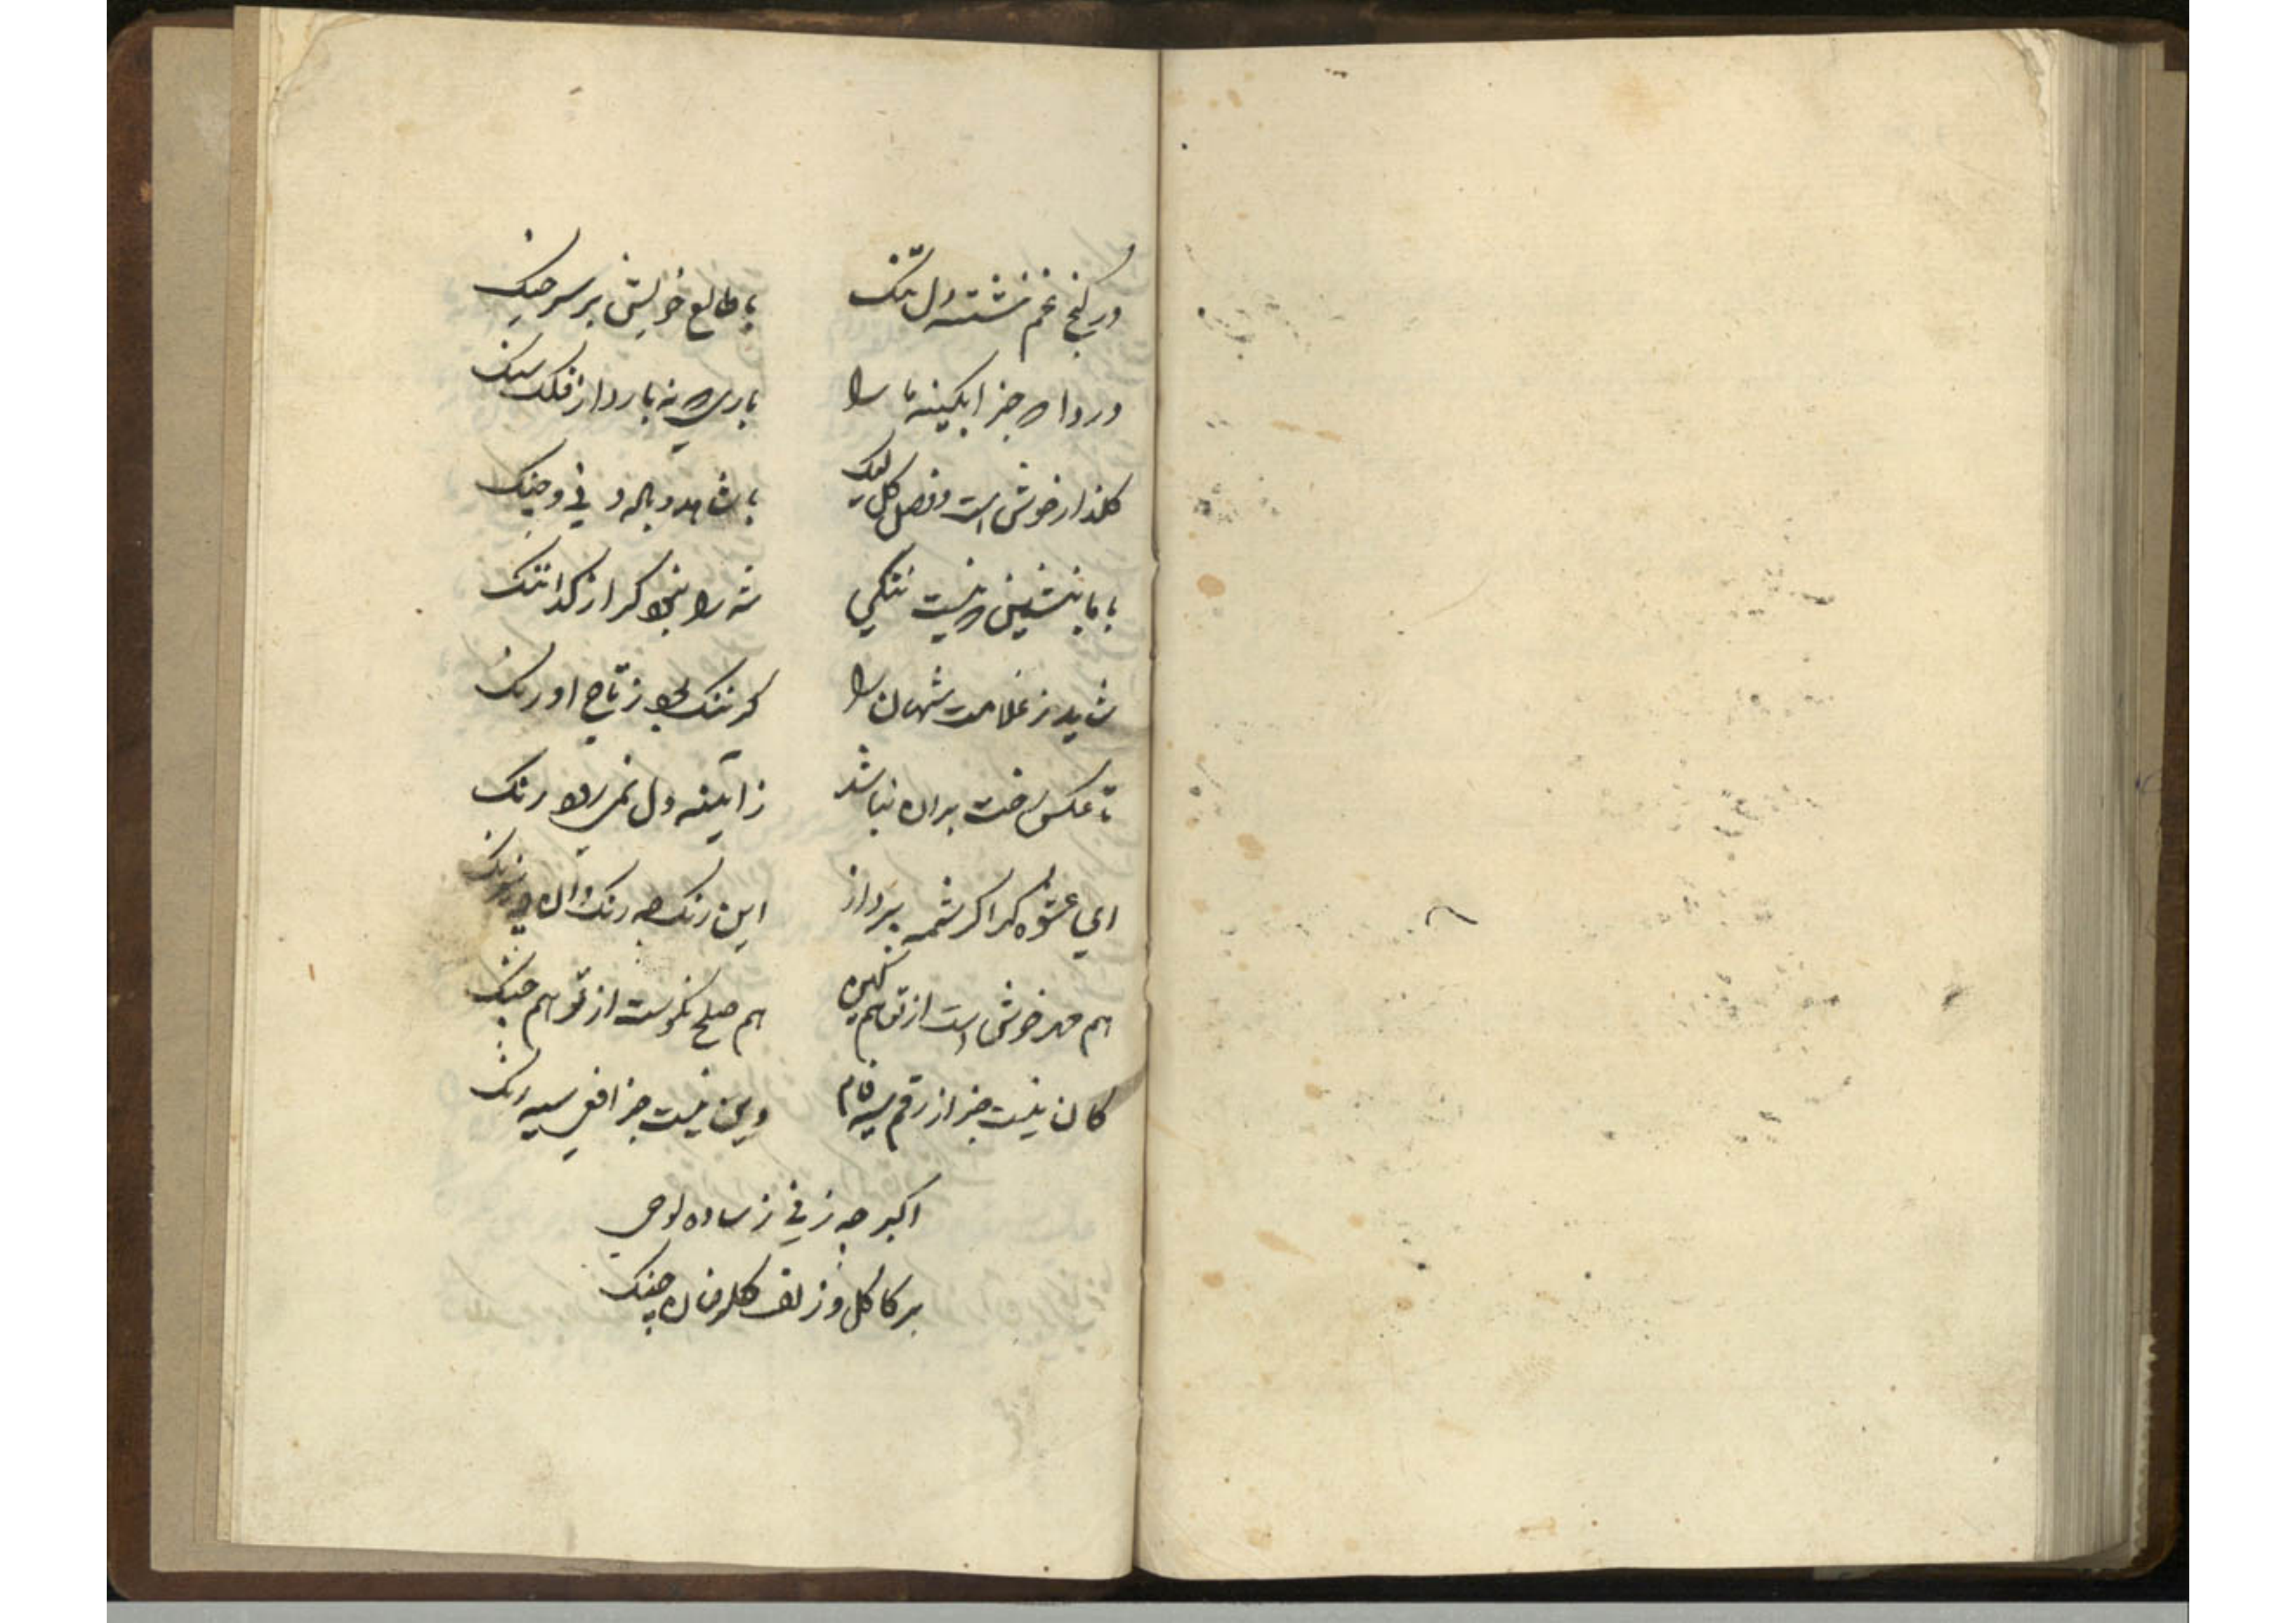 در کنج غم نشسته دل تنک
با طالع خویش بر سر جنک
دردا که جز ابکینه ما را
باری که نه بارد از فلک سنک
کلذار خوش است و فصل کل لیک
با شاهد و باله و نی و چنک
با ما بنشین که نیست ننکی
شه را نبود کر از کدا ننک
شاید ز غلامت شهان را
کر ننک بود ز تاج اورنک
تا عکس رخت بران نباشد
ز ایینه دل نمی رود زنک
ای عشوه کرا کرشمه پرداز
این رنک چه رنک و ان چه نیرنک
هم مهر خوش است از تو هم کین
هم صلح نکوست از تو هم جنک
کان نیست جز از رقم سیه فام
وین نیست جز افعی سیه رنک
اکبر چه زنی ز ساده لوحی
بر کاکل و زلف کلرخان چنک